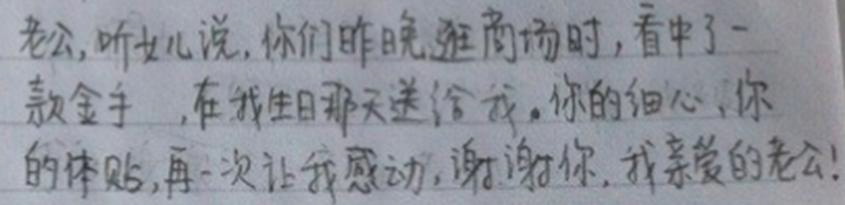 老公,听女儿说,你们昨晚逛商场时,看中了一
款金手 ,在我生日那天送给我。你的细心、你
的体贴,再一次让我感动,谢谢你,我亲爱的老公!